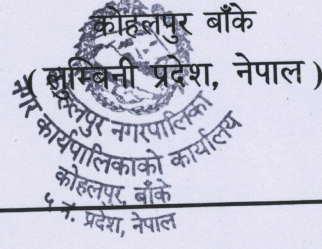 कोहलपुर बाँके
( लुम्बिनी प्रदेश, नेपाल )
कोहलपुर नगरपालिका
नगर कार्यपालिकाको कार्यालय
कोहलपुर, बाँके
५ नं. प्रदेश, नेपाल